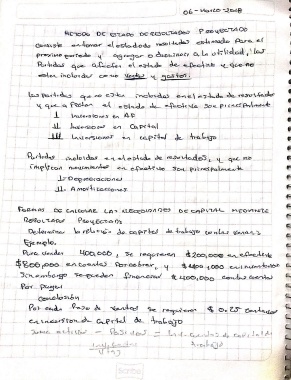 06-Marzo-2018
METODO DE ESTADO DE RESULTADOS PROYECTADO
consiste en tomar el estado de resultados estimado para el
proximo periodo y agregar o disminuir a la utilidad, las
Partidas que afecten el estado de efectivo y que no
esten incluidas como ventas y gastos.
Las partidas que no estan incluidas en el estado de resultados
y que afectan el estado de efectivo son principalmente
I Inversiones en AF
II Inversiones en Capital
III Inversiones en capital de trabajo
Partidas incluidas en el estado de resultados, y que no
implican movimientos en efectivo son principalmente
I- Depreciaciones
II- Amortizaciones
FORMAS DE CALCULAR LAS NECESIDADES DE CAPITAL MEDIANTE
RESULTADOS PROYECTADOS
Determinar la relación de capital de trabajo con las ventas
Ejemplo.
Para vender 400,000, se requieren $200,000 en efectivo
$800,000 en cuentas por cobrar, y $400,000 en inventarios
Sin embargo se pueden financiar $400,000 con las cuentas
Por pagar
conclusión
Por cada Peso de ventas se requieren $ 0.25 centavos
en inversion de capital de trabajo
- Pasivos =